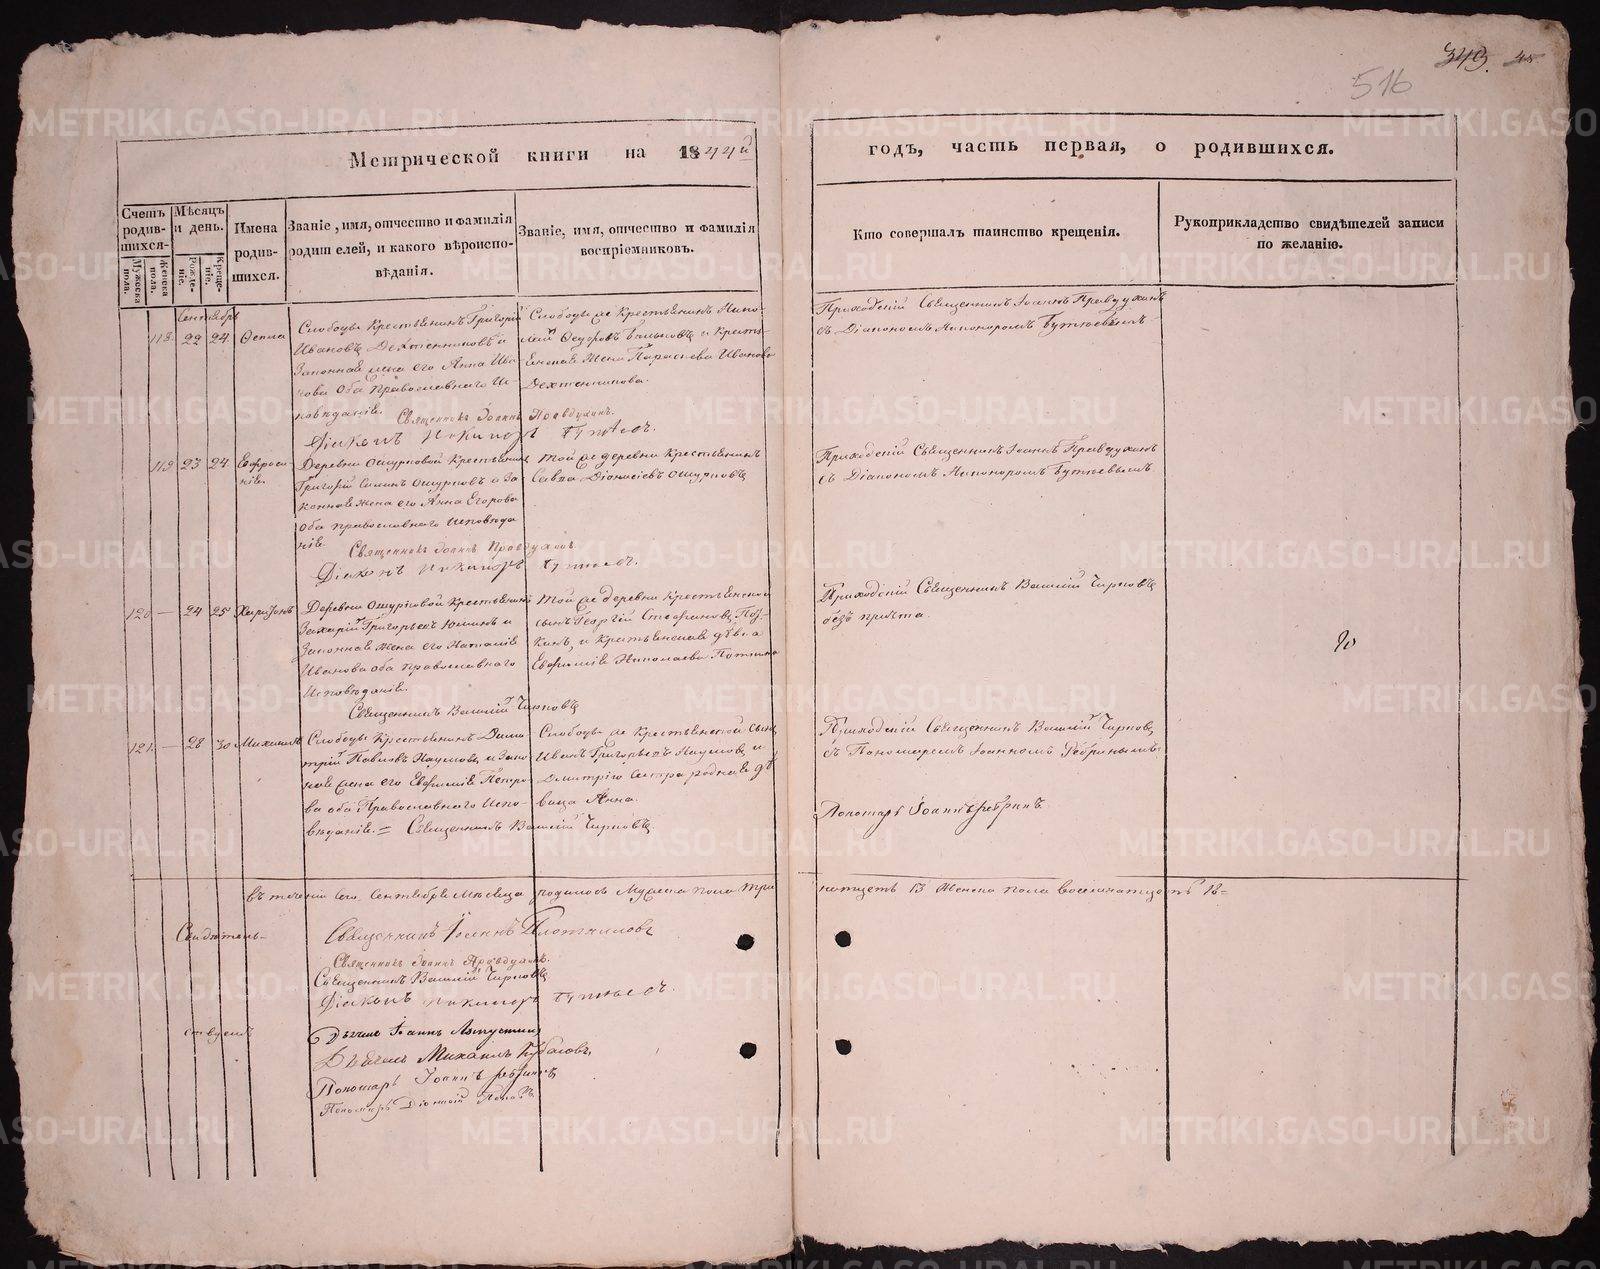 349.
516
Метрической книги на 1844й
годъ, часть первая, о родившихся.
Счетъ родив-шихся.
Мужеска пола.
Женска пола.
Мѣсяцъ и день.
Рожде-ніе.
Креще-ніе.
Имена родив-шихся.
Званіе, имя, отчество и фамилія родителей, и какого вѣроиспо-вѣданія.
Званіе, имя, отчество и фамилія воспріемниковъ.
Кто совершалъ таинство крещенія.
Рукоприкладство свидѣтелей записи по желанію.
Сентябрь
118. 22 24. Ѳекла
Слободы Крестьянинъ Григорій
Ивановъ и
Законная жена его Анна Ива-
нова оба православнаго И-
повѣданія.
Священникъ Іоаннъ Правдухинъ.
Діаконъ Никаноръ
Слободы же Крестьянинъ
и Кресть-
янская Жена Параскева Иванова
Приходскій Священникъ Іоаннъ Правдухинъ
съ Діакономъ Никаноромъ
119 23 24 Евфроси-
нія.
Деревни Ошурковой Крестьянинъ
Григорій Ошурковъ и За
конная Жена его Анна Егорова
оба православнаго исповѣда
нія.
Священникъ Іоаннъ Правдухинъ.
Діаконъ Никаноръ
Той же деревни Крестьянинъ
Савва Діонисіевъ Ошурковъ
Приходскій Священникъ Іоаннъ Правдухинъ
съ Діакономъ Никаноромъ
120 — 24 25 Харитонъ
Деревни Ошурковой Крестьянинъ
Захарій Григорьевъ и
Законная жена его Наталія
Иванова оба православнаго
Исповѣданія.
Священникъ Василій Чирковъ
Той же деревни Крестьянской
сынъ Георгій Стефановъ
и Крестьянская дѣвка
Евфимія Николаева
Приходскій Священникъ Василій Чирковъ
безъ причта.
121. — 28 30 Михаилъ
Слободы Крестьянинъ Дими
трій Павловъ Наумовъ и Закон
ная жена его Евфимія Петро
ва оба Православнаго Испо-
вѣданія. = Священникъ Василій Чирковъ
Слободы же Крестьянской сынъ
Иванъ Григорьевъ Наумовъ и
Дмитрію сестра родная дѣ
вица Анна.
Приходскій Священникъ Василій Чирковъ,
съ Пономаремъ Іоанномъ Ребринымъ
Пономарь Іоаннъ Ребринъ
въ теченіи сего Сентября мѣсяца родилось Мужеска пола три
натцеть 13 Женска пола восемнатцеть 18=
Свидѣтель-
ствуемъ
Священникъ Іоаннъ Плотниковъ
Священникъ Іоаннъ Правдухинъ.
Священникъ Василій Чирковъ
Діаконъ Никаноръ
Дьячекъ Іоаннъ
Дьячекъ Михаилъ
Пономарь Іоаннъ Ребринъ
Пономарь Діонисій Поповъ
METRIKI.GASO-URAL.RU